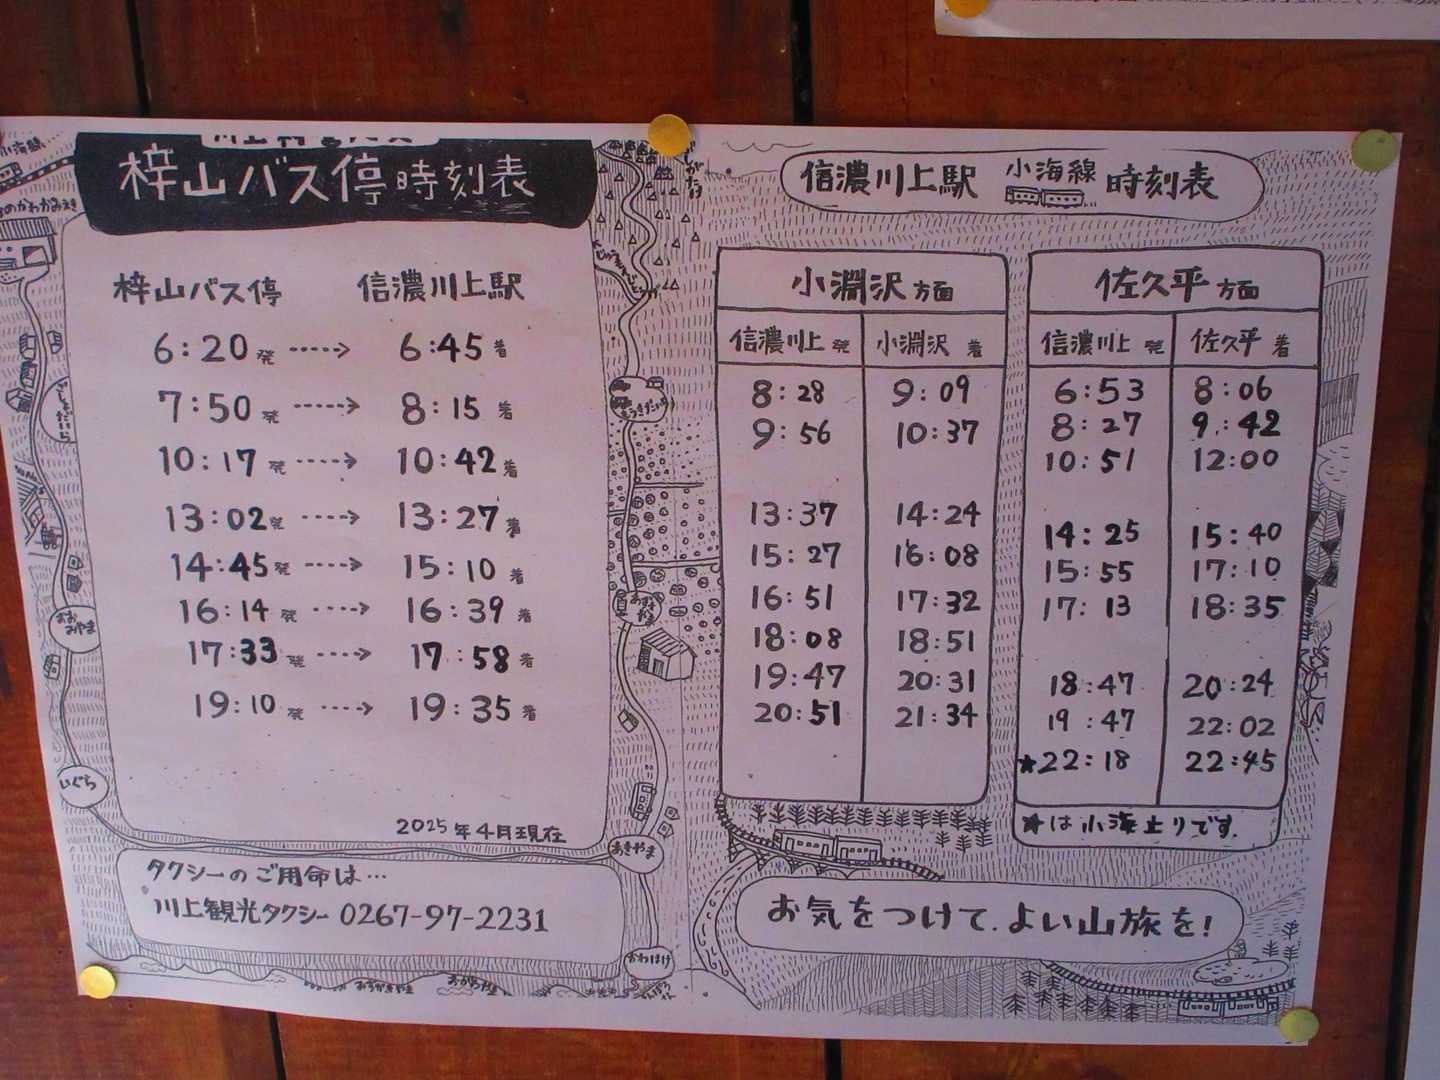 梓山バス停時刻表
梓山バス停 信濃川上駅
6:20発 ----> 6:45着
7:50発 ----> 8:15着
10:17発 ----> 10:42着
13:02発 ----> 13:27着
14:45発 ----> 15:10着
16:14発 ----> 16:39着
17:33発 ----> 17:58着
19:10発 ----> 19:35着
2025年4月現在
タクシーのご用命は…
川上観光タクシー 0267-97-2231
小海線
おおみやま
いぐち
あきやま
おわはけ
あずさやま
信濃川上駅 小海線 時刻表
小淵沢方面
信濃川上発 小淵沢着
8:28 9:09
9:56 10:37
13:37 14:24
15:27 16:08
16:51 17:32
18:08 18:51
19:47 20:31
20:51 21:34
佐久平方面
信濃川上発 佐久平着
6:53 8:06
8:27 9:42
10:51 12:00
14:25 15:40
15:55 17:10
17:13 18:35
18:47 20:24
19:47 22:02
★22:18 22:45
★は小海止りです.
お気をつけて.よい山旅を!